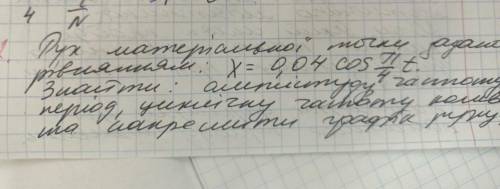 4 1/N
Рух матеріальної точки задано
рівнянням: X = 0,04 cos π/4 t.
Знайти: амплітуду, частоту
період, циклічну частоту колив
та накреслити графік руху